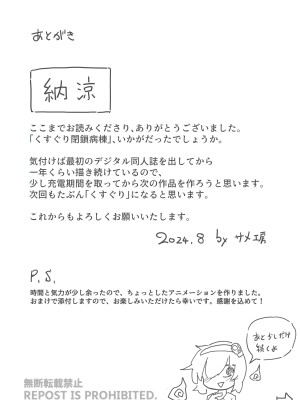 あとがき
納涼
ここまでお読みくださり、ありがとうございました。
「くすぐり閉鎖病棟」、いかがだったでしょうか。
気付けば最初のデジタル同人誌を出してから
一年くらい描き続けているので、
少し充電期間を取ってから次の作品を作ろうと思います。
次回もたぶん「くすぐり」になると思います。
これからもよろしくお願いいたします。
2024.8 by サメ居
P.S.
時間と気力が少し余ったので、ちょっとしたアニメーションを作りました。
おまけで添付しますので、お楽しみいただけたら幸いです。感謝を込めて!
あと少しだけ
続くよ
無断転載禁止
REPOST IS PROHIBITED.